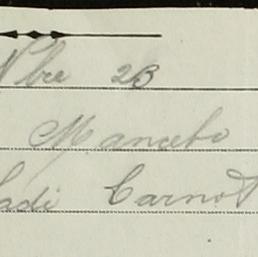 Nbre 23
Mancebo
Sadi Carnot